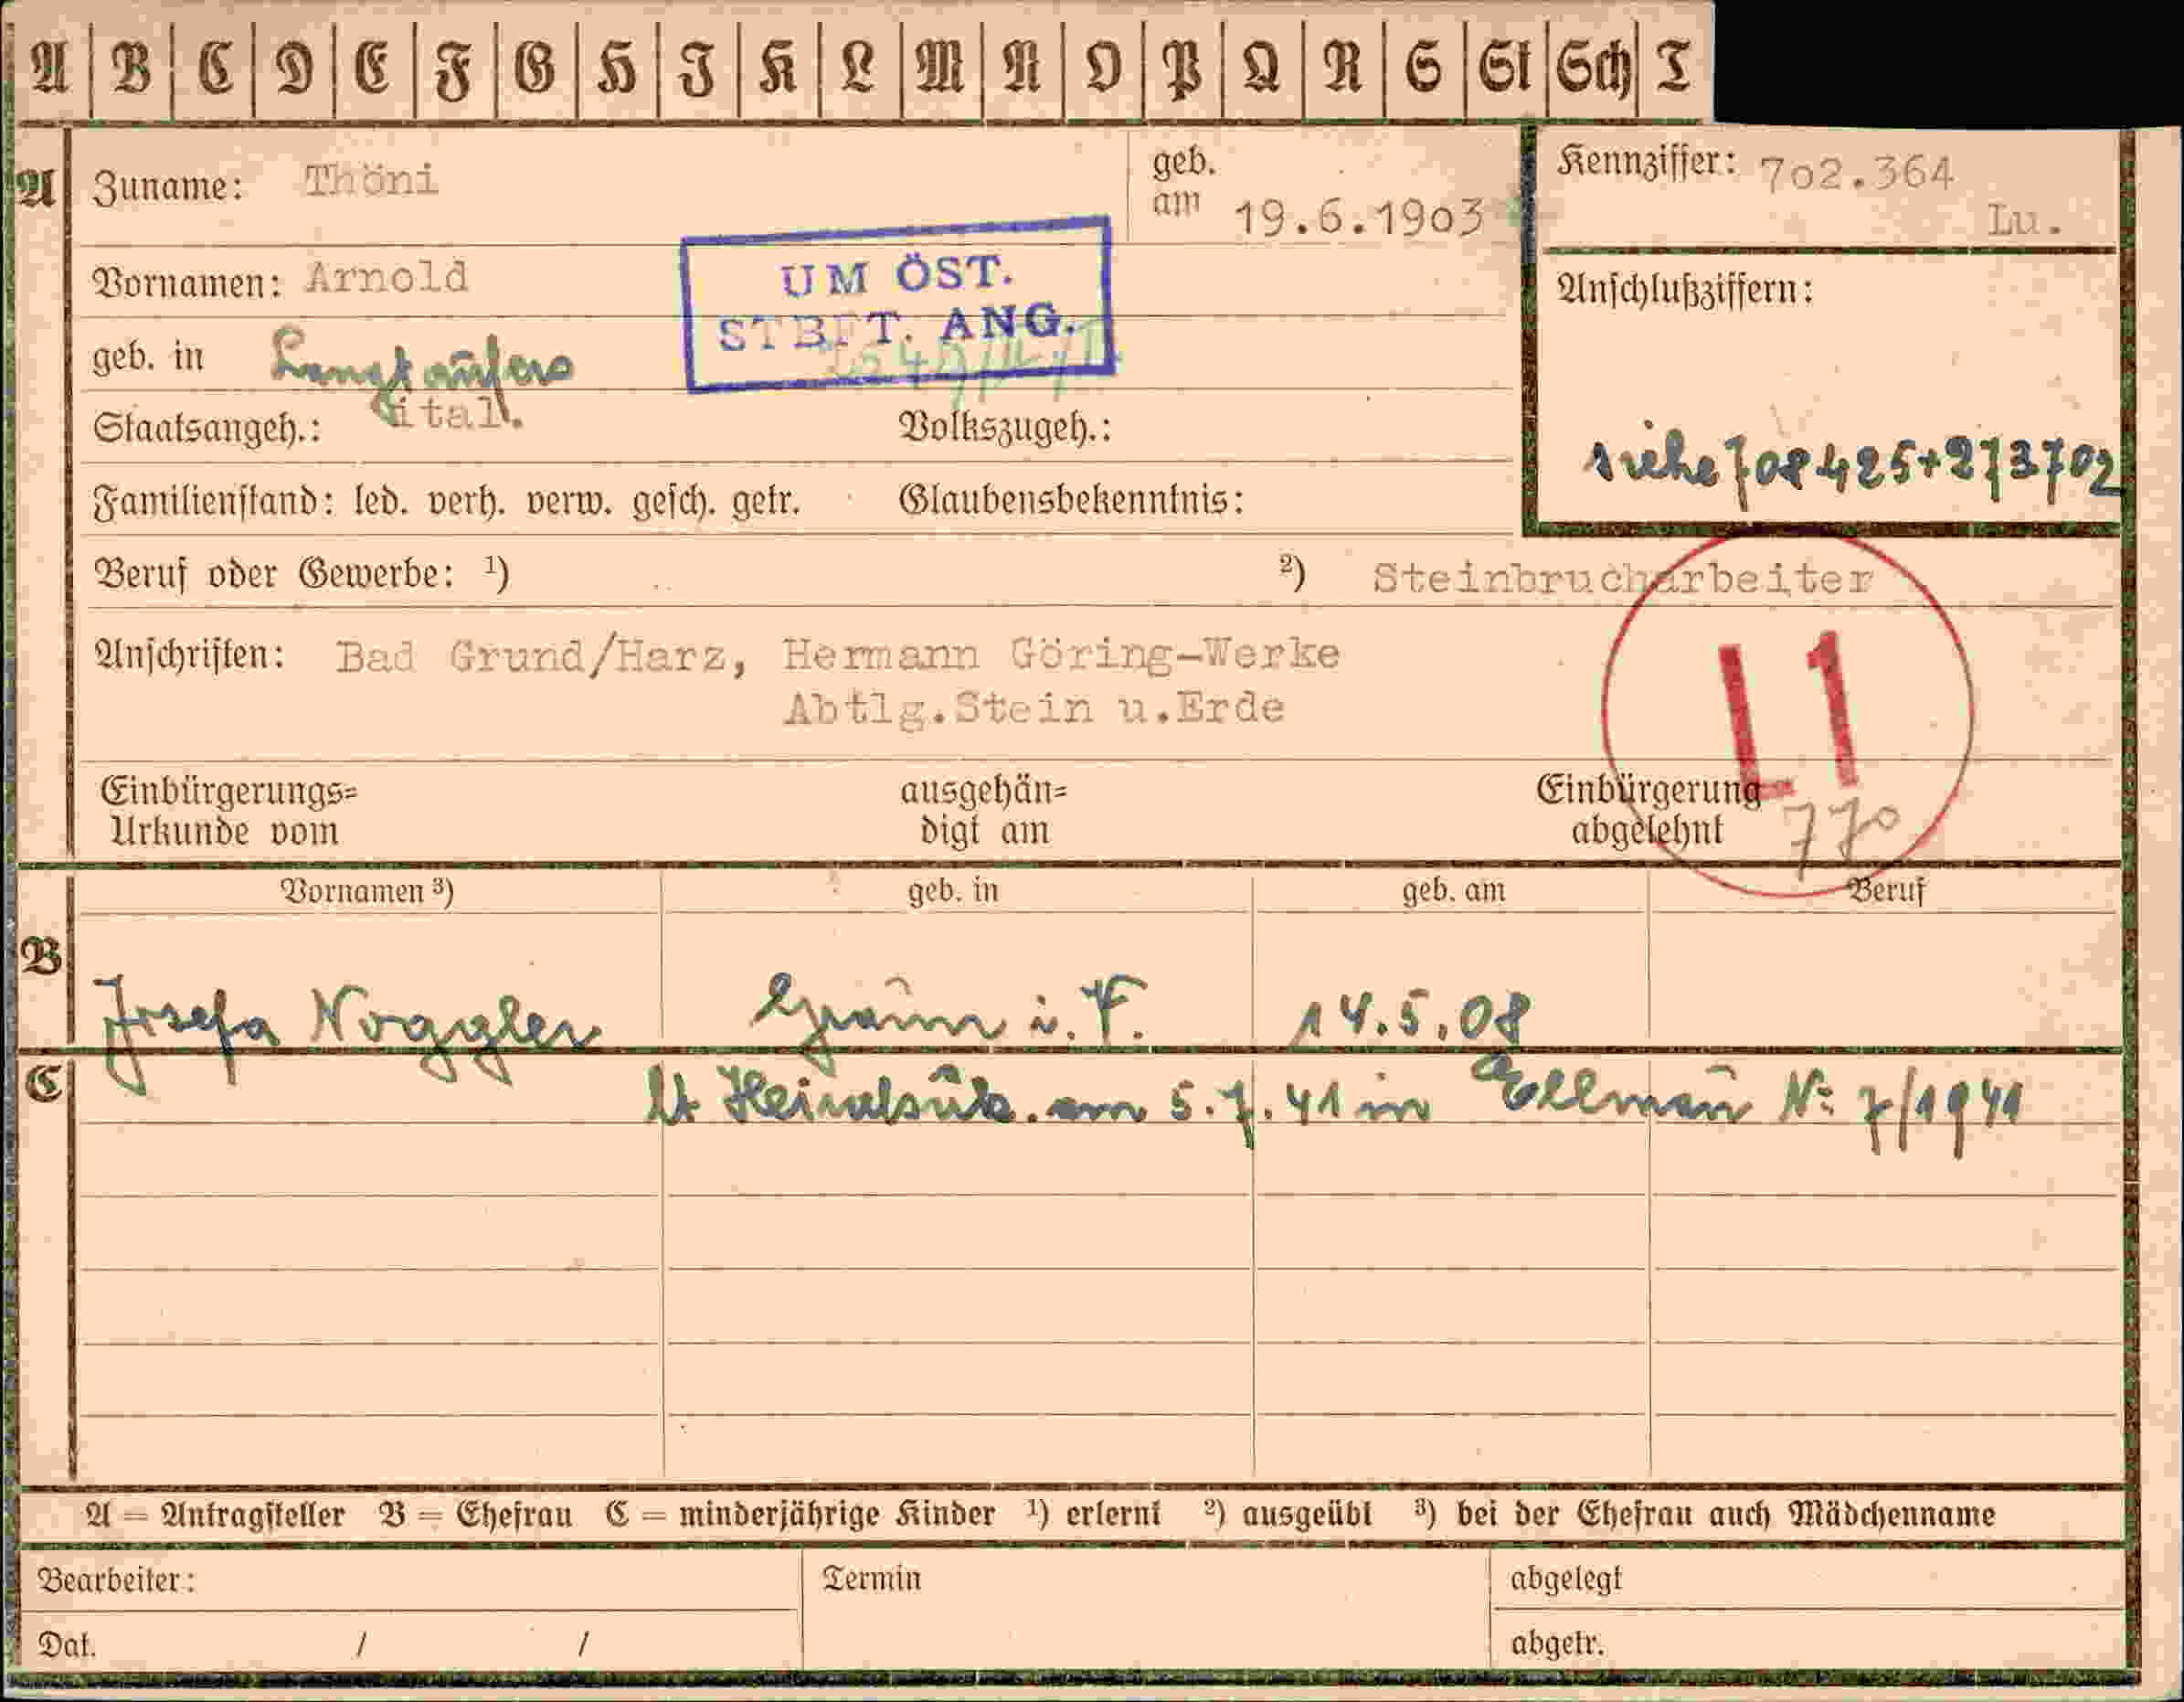 A B C D E F G H J K L M N O P Q R S St Sch T
A Zuname: Thöni geb. am 19.6.1903 Kennziffer: 702.364
Lu.
UM ÖST.
STBFT. ANG.
Vornamen: Arnold Anschlußziffern:
geb. in Langtaufers
Staatsangeh.: ital. Volkszugeh.:
siehe 708425+273702
Familienstand: led. verh. verw. gesch. getr. Glaubensbekenntnis:
Beruf oder Gewerbe: ¹) ²) Steinbrucharbeiter
Anschriften: Bad Grund/Harz, Hermann Göring-Werke
Abtlg.Stein u.Erde
L1
Einbürgerungs= ausgehän= Einbürgerung
Urkunde vom digt am abgelehnt 770
Vornamen ³) geb. in geb. am Beruf
B
Josefa Noggler Graun i. V. 14.5.08
C lt Heiratsurk. am 5.7.41 in Ellmau N: 7/1941
A = Antragsteller B = Ehefrau C = minderjährige Kinder ¹) erlernt ²) ausgeübt ³) bei der Ehefrau auch Mädchenname
Bearbeiter: Termin abgelegt
Dat. / / abgetr.